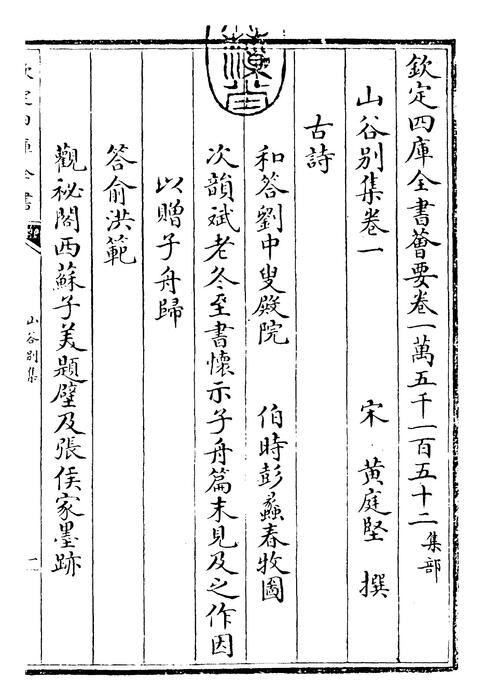 欽定四庫全書薈要卷一萬五千一百五十二 集部
山谷别集卷一 宋 黄庭堅 撰
古詩
和答劉中叟殿院 伯時彭蠡春牧圖
次韻斌老冬至書懷示子舟篇末見及之作因
以贈子舟歸
答俞洪範
觀祕閣西蘇子美題壁及張侯家墨跡
欽定四庫全書
山谷别集
一